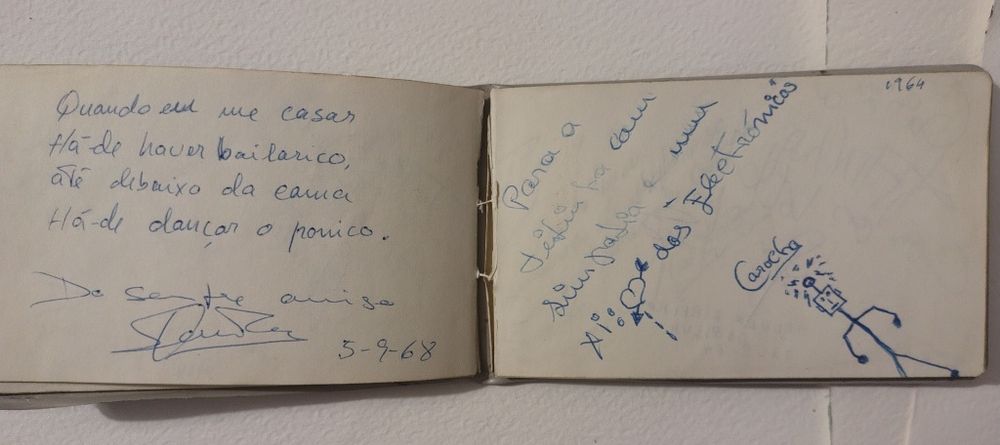 Quando eu me casar
Há-de haver bailarico,
até debaixo da cama
Há-de dançar o penico.
Do sempre amigo
5-9-68
1964
Para a
com
simpatia e um
Xi dos "Electrónicos"
!
Carocha